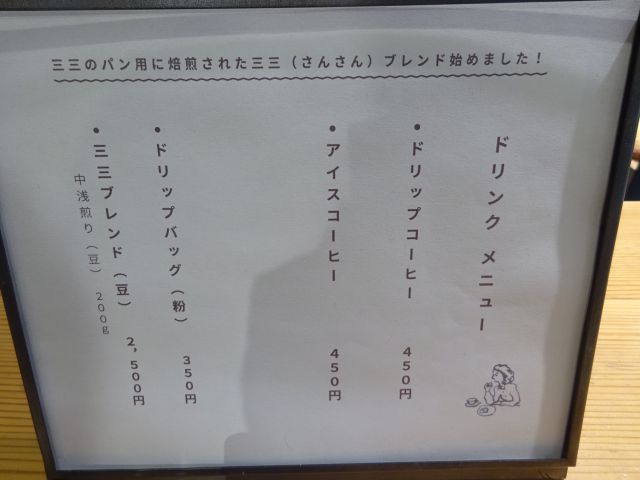 三三のパン用に焙煎された三三（さんさん）ブレンド始めました！
ドリンク メニュー
・ドリップコーヒー 450円
・アイスコーヒー 450円
・ドリップバッグ（粉） 350円
・三三ブレンド（豆） 2,500円
中浅煎り（豆） 200g